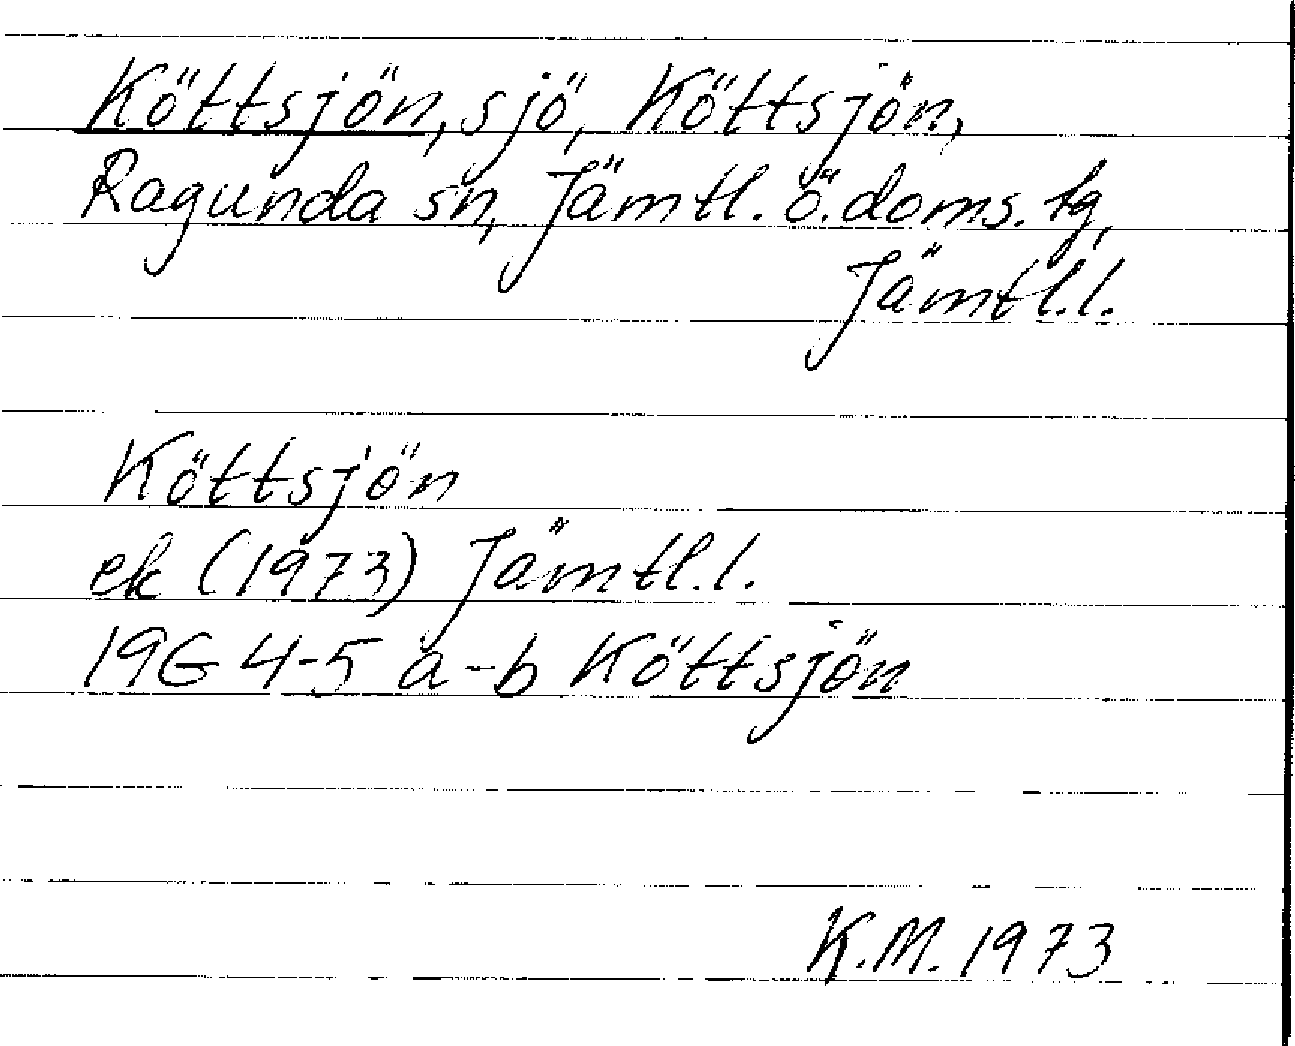 Köttsjön, sjö, Köttsjön,
Ragunda sn, Jämtl. ö. doms. tg,
Jämtl. l.
Köttsjön
ek (1973) Jämtl. l.
19G 4-5 a-b Köttsjön
K.M. 1973